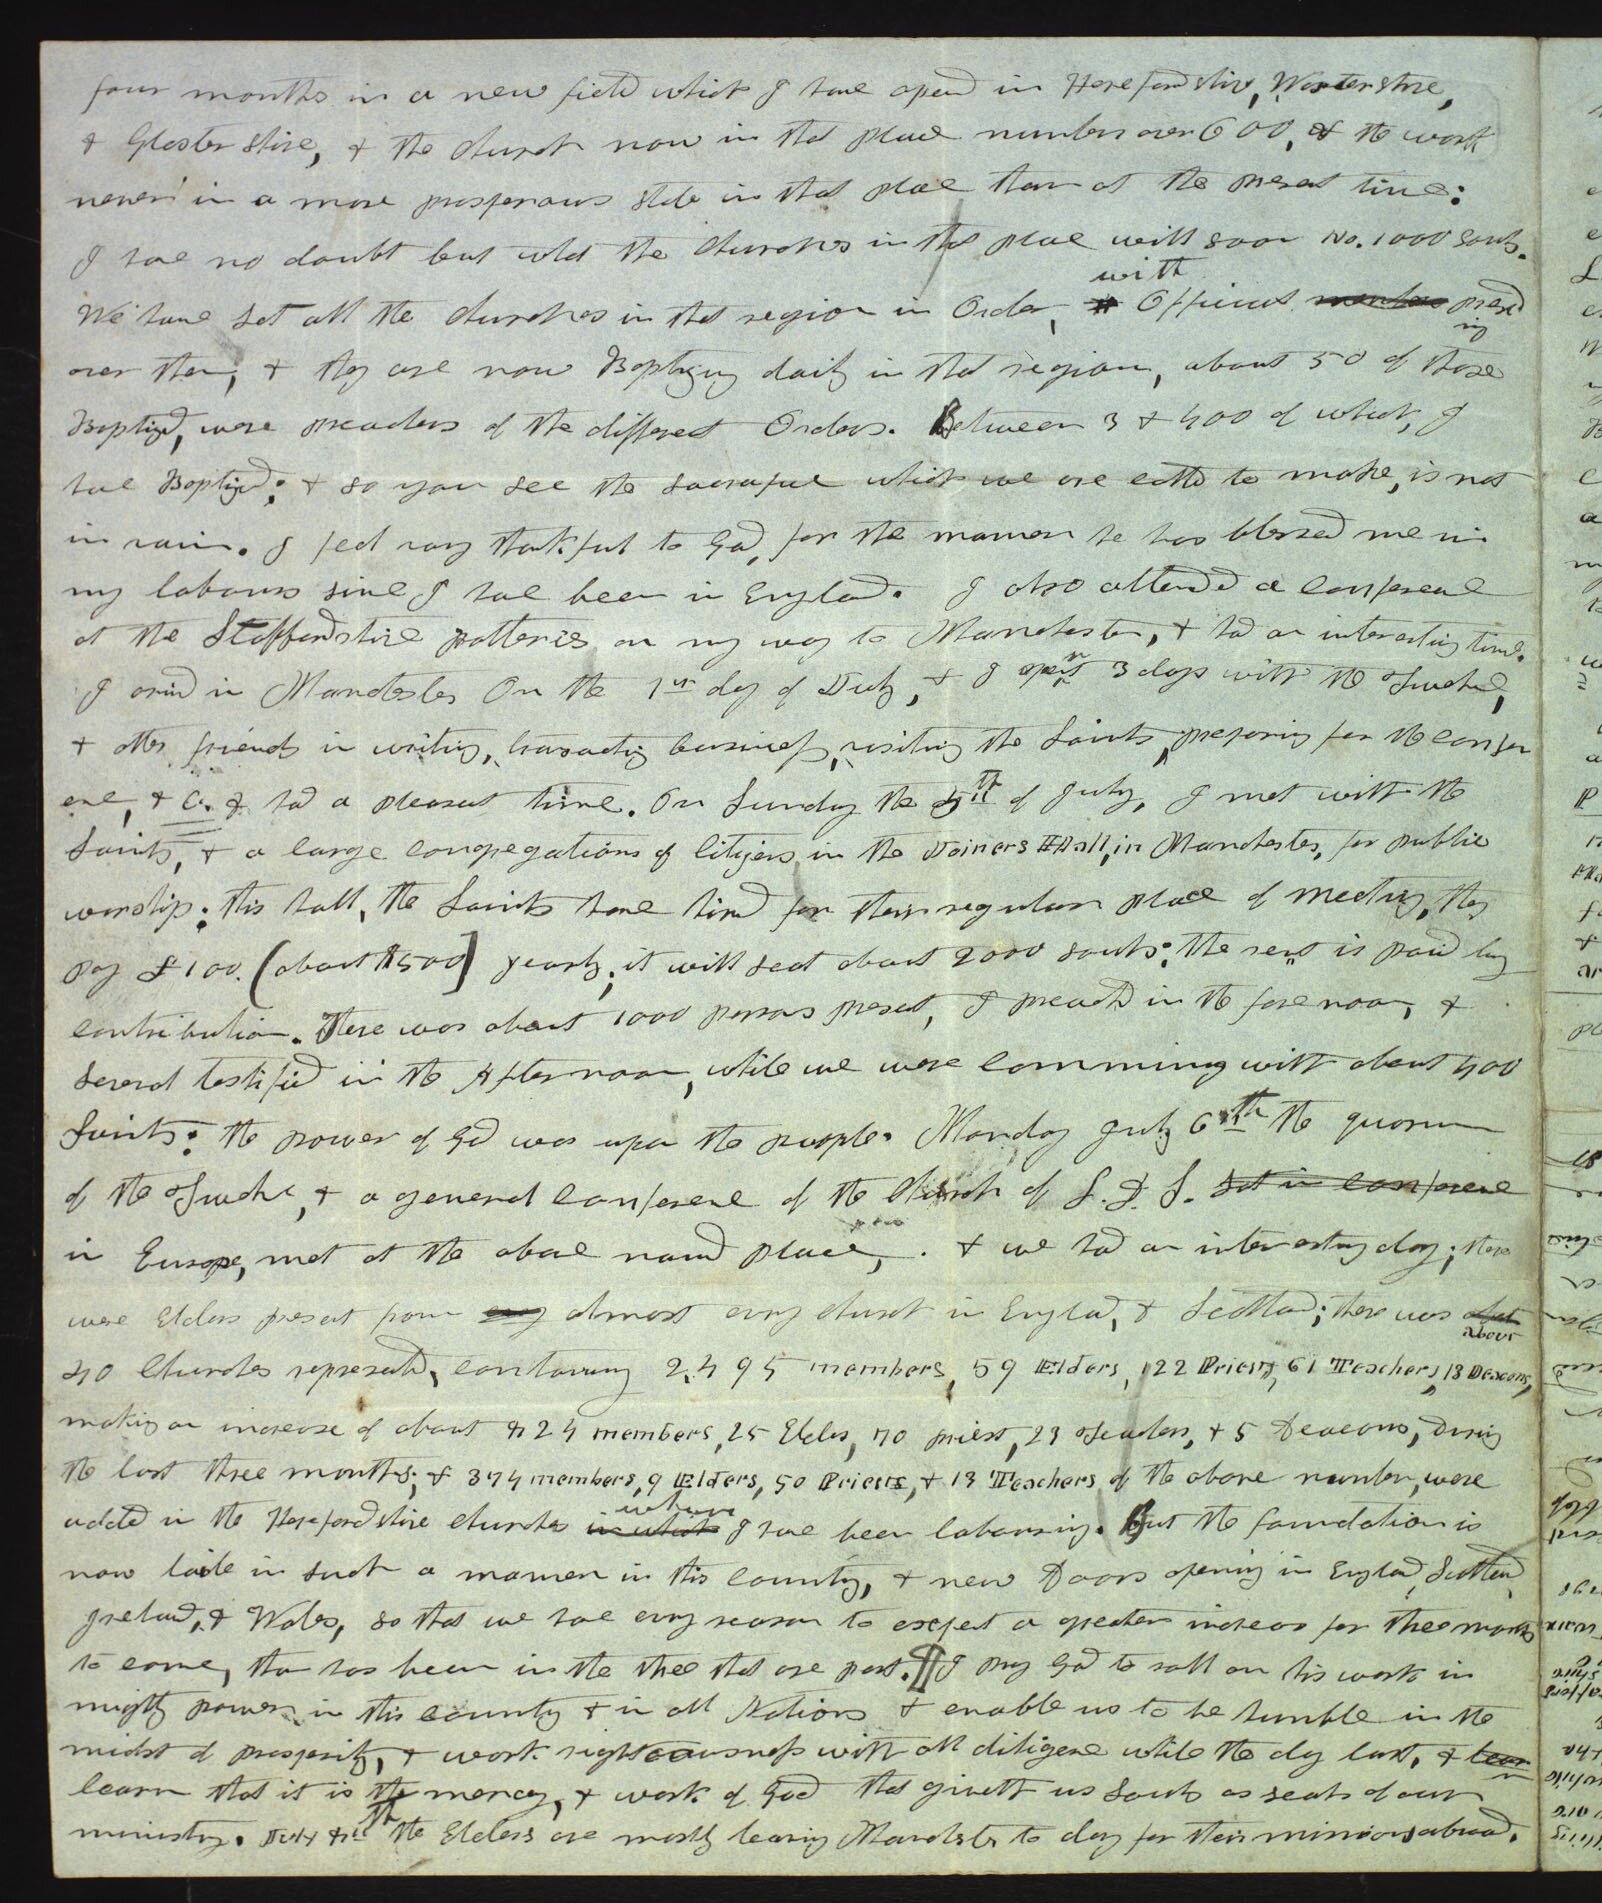 four months in a new field which I have opend in Herefordshire, Worstershire,
& Glostershire, & the church now in that place numbers over 600, & the work
never in a more prosperous state in that place than at the present time:
I have no doubt but what the churches in that place will soon No. 1000 Souls.
We have set all the churches in that region in Order, with Officers members presid
ing
over them, & they are now Baptizing daily in that region, about 50 of those
Baptized, were preachers of the different Orders. Between 3 & 400 of which, I
have Baptized; & so you see the sacrafice which we are called to make, is not
in vain. I feel vary thankful to God, for the manner he has blessed me in
my labours since I have been in England. I also attended a conference
at the Staffordshire potteries on my way to Manchester, & had an interesting time.
I arived in Manchester On the 1st day of July, & I spent 3 days with the Twelve,
& other friends in writing, transacting business, visiting the Saints, preparing for the confer
ence, & C. & had a pleasant time. On Sunday the 5th of July, I met with the
Saints, & a large congregations of Citizens in the Joiners Hall, in Manchester, for public
worship; this hall, the Saints have hired for their regular place of meeting, they
pay £100. (about $500] yearly; it will seat about 2000 souls; the rent is paid by
contribution. There was about 1000 persons present, I preachd in the forenoon, &
several testified in the Afternoon, while we were communing with about 400
Saints: the power of God was upon the people. Monday July 6th the quorum
of the Twelve, & a general conference of the Church of L. D. S. set in conference
in Europe, met at the above named place, . & we had an interesting day; there
were Elders present from every almost every church in England, & Scotland; there was
about
40 Churches represented, containing 2,495 members, 59 Elders, 122 Priests, 61 Teachers, 13 Deacons,
making an increase of about 824 members, 25 Elders, 70 priest, 23 Teachers, & 5 Deacons, During
the last three months; & 374 members, 9 Elders, 50 Priests, & 13 Teachers of the above number, were
added in the Herefordshire churches in which where I have been labouring. But the foundation is
now laide in such a manner in this country, & new Doors opening in England, Scotland,
Ireland, & Wales, so that we have every reason to expect a greater increas for three months
to come, than has been in the three that are past. I pray God to roll on his work in
mighty power, in this country & in all Nations & enable us to be humble in the
midst of prosperity, & work righteousness with all diligence while the day last, &
learn that it is the mercy, & work of God that giveth us Souls as seals of our
ministry. July the Elders are mostly leaving Manchester to day for their missions abroad.